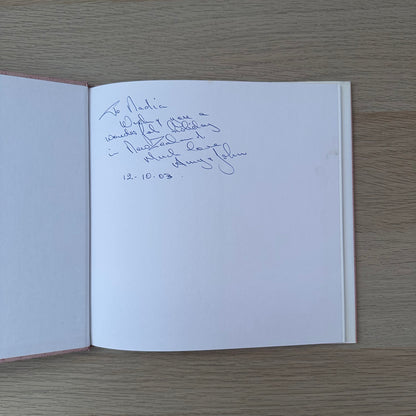 To Nadia
Wish you a
wonderful holiday
in New Zealand
Much love
Amy & John
12.10.03